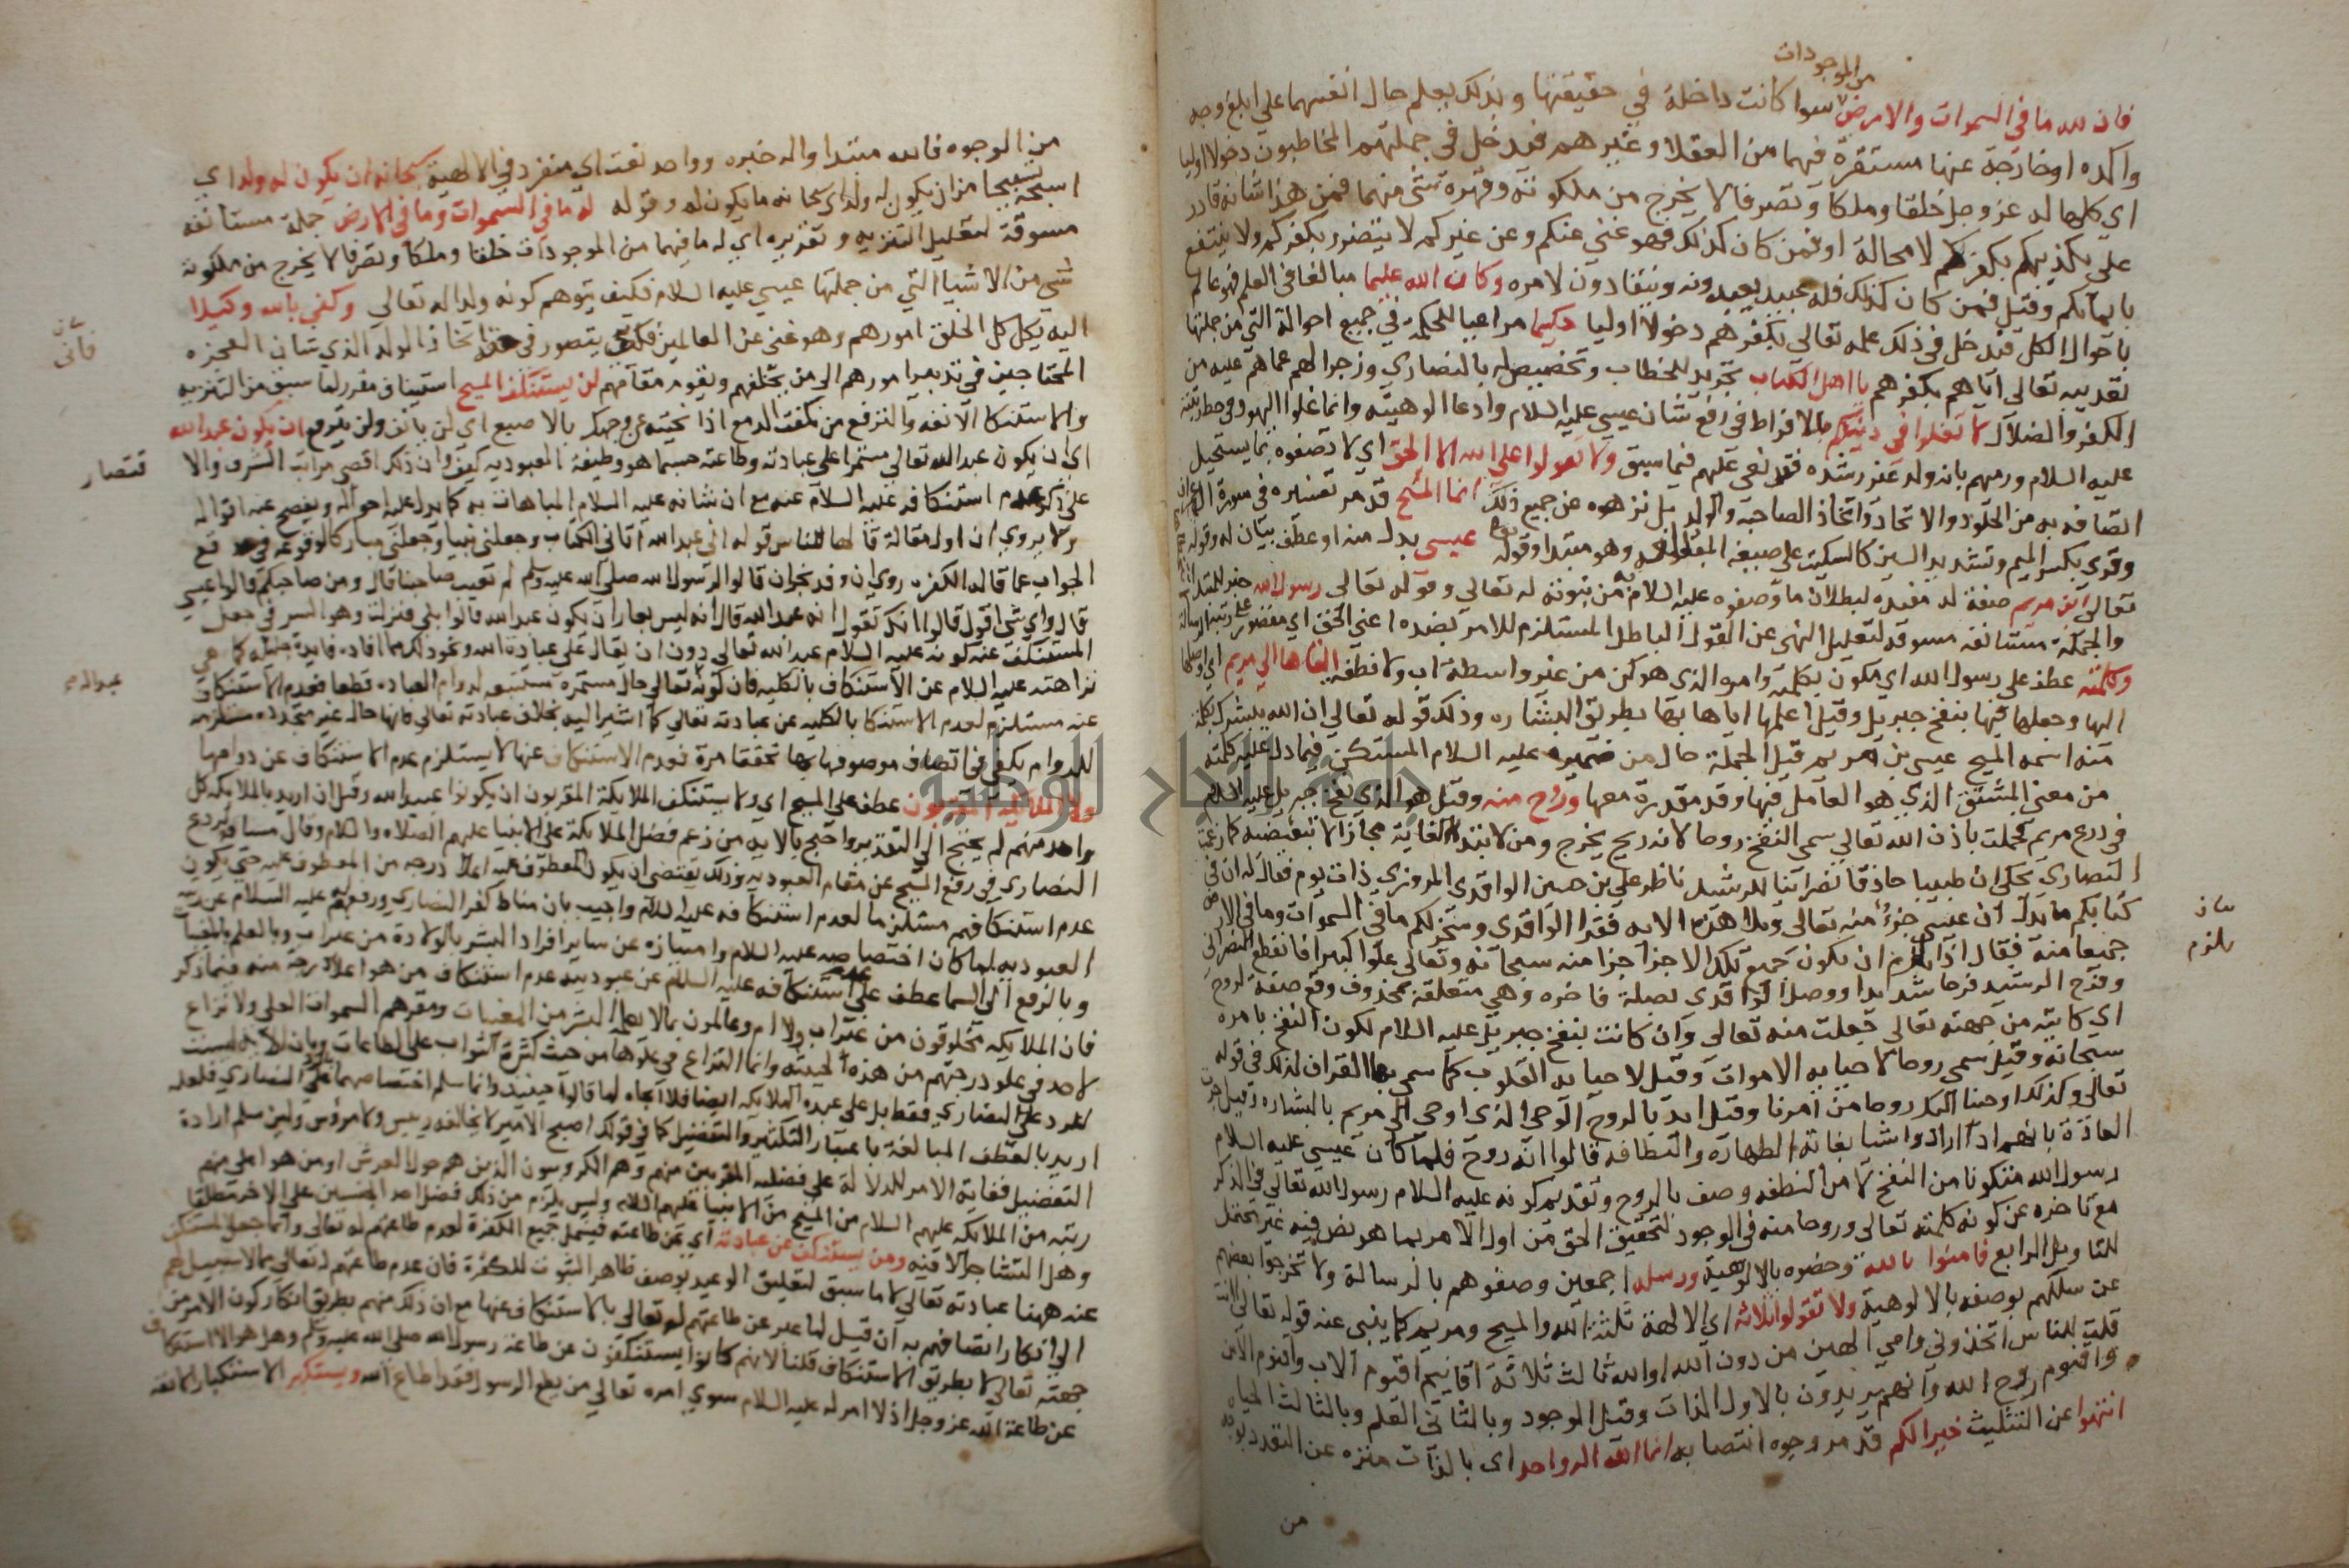 من الموجودات
فان لله ما في السموات والارض سوا كانت داخلة في حقيقتها وبذلك يعلم حال انفسهما على ابلغ وجه
واكده او خارجة عنها مستقرة فيهما من العقلا وغيرهم فيدخل في جملتهم المخاطبون دخولا اوليا
اي كلها له عز وجل خلقا وملكا وتصرفا لا يخرج من ملكوته وقهره شي منهما فمن هذا شانه قادر
على تعذيبكم بكفركم لا محالة او فمن كان كذلك فهو غني عنكم وعن غيركم لا يتضرر بكفركم ولا ينتفع
بايمانكم وقيل فمن كان كذلك فله عبيد يعبدونه وينقادون لامره وكان الله عليما مبالغا في العلم فهو عالم
باحوال الكل فيدخل في ذلك علمه تعالى بكفرهم دخولا اوليا حكيما مراعيا للحكمة في جميع احواله التي من جملتها
تعذيبه تعالى اياهم بكفرهم يا اهل الكتاب تجريد للخطاب وتخصيص له بالنصارى وزجر لهم عما هم عليه من
الكفر والضلال لا تغلوا في دينكم بالافراط في رفع شان عيسى عليه السلام وادعا الوهيته وانما غلوا اليهود في حط رتبته
عليه السلام ورميهم بانه ولد غير رشده فقد نعى عليهم فيما سبق ولا تقولوا على الله الا الحق اي لا تصفوه بما يستحيل
اتصافه به من الحلول والاتحاد واتخاذ الصاحبة والولد بل نزهوه عن جميع ذلك انما المسيح قد مر تفسيره في سورة ال عمران
وقري بكسر الميم وتشديد السين كالسكيت على صيغة المبالغة وهو مبتدا وقوله تعالى عيسى بدل منه او عطف بيان له وقوله
تعالى ابن مريم صفة له مفيدة لبطلان ما وصفوه عليه السلام به من بنوته له تعالى وقوله تعالى رسول الله خبر للمبتدا
والجملة مستانفة مسوقة لتعليل النهي عن القول الباطل المستلزم للامر بضده اعني الحق اي مقصور على رتبة الرسالة
وكلمته عطف على رسول الله اي مكون بكلمته وامره الذي هو كن من غير واسطة اب ولا نطفة القاها الى مريم اي اوصلها
اليها وجعلها فيها بنفخ جبريل وقيل اعلمها اياها بها بطريق البشارة وذلك قوله تعالى ان الله يبشرك بكلمة
منه اسمه المسيح عيسى بن مريم قيل الجملة حال من ضميره عليه السلام المستكن فيما دل عليه كلمته
من معنى المشتق الذي هو العامل فيها وقد مقدرة معها وروح منه وقيل هو الذي نفخ جبريل عليه السلام
في درع مريم فحملت باذن الله تعالى سمي النفخ روحا لانه ريح يخرج ومن لابتدا الغاية مجازا لا تبعيضية كما زعمت
النصارى يحكى ان طبيبا حاذقا نصرانيا للرشيد ناظر علي بن حسين الواقدي المروزي ذات يوم فقال له ان في
كتابكم ما يدل ان عيسى جزء منه تعالى وتلا هذه الاية فقرا الواقدي وسخر لكم ما في السموات وما في الارض
جميعا منه فقال اذا يلزم ان يكون جميع تلك الاجزا جزا منه سبحانه وتعالى علوا كبيرا فانقطع النصراني
وفرح الرشيد فرحا شديدا ووصل الواقدي بصلة فاخره وهي متعلقة بمحذوف وقع صفة لروح
اي كاينة من جهته تعالى جعلت منه تعالى وان كانت بنفخ جبريل عليه السلام لكون النفخ بامره
سبحانه وقيل سمي روحا لاحيايه الاموات وقيل لاحيايه القلوب كما سمي به القران لذلك في قوله
تعالى وكذلك اوحينا اليك روحا من امرنا وقيل اريد بالروح الوحي الذي اوحى الى مريم بالبشارة وقيل جرت
العادة بانهم اذا ارادوا شيا بغاية الطهارة والنظافة قالوا انه روح فلما كان عيسى عليه السلام
رسول الله متكونا من النفخ لا من النطفة وصف بالروح وتقديم كونه عليه السلام رسول الله تعالى في الذكر
مع تاخره عن كونه كلمته تعالى وروحا منه في الوجود لتحقيق الحق من اول الامر بما هو نص فيه غير محتمل
للتاويل الرابع فامنوا بالله وخصوه بالالوهية ورسله اجمعين وصفوهم بالرسالة ولا تخرجوا بعضهم
عن سلكهم بوصفه بالالوهية ولا تقولوا ثلاثة اي الالهة ثلثة الله والمسيح ومريم كما ينبي عنه قوله تعالى اانت
قلت للناس اتخذوني وامي الهين من دون الله او الله ثالث ثلاثة اقانيم اقنوم الاب واقنوم الابن
واقنوم روح الله وانهم يريدون بالاول الذات وقيل الوجود وبالثاني العلم وبالثالث الحياه
انتهوا عن التثليث خيرا لكم قد مر وجوه انتصابه انما الله اله واحد اي بالذات منزه عن التعدد بوجه
من
بيان
يلزم
من الوجوه فالله مبتدا واله خبره وواحد نعت اي منفرد في الالهية سبحانه ان يكون له ولد اي
اسبحه تسبيحا من ان يكون له ولد اي سبحانه ما يكون له وقوله له ما في السموات وما في الارض جملة مستانفة
مسوقة لتعليل التنزيه وتقريره اي له ما فيهما من الموجودات خلقا وملكا وتصرفا لا يخرج من ملكوته
شي من الاشيا التي من جملتها عيسى عليه السلام فكيف يتوهم كونه ولدا له تعالى وكفى بالله وكيلا
اليه يكل كل الخلق امورهم وهو غني عن العالمين فكيف يتصور في حقه اتخاذ الولد الذي شان العجزه
المحتاجين في تدبير امورهم الى من يخلفهم ويقوم مقامهم لن يستنكف المسيح استيناف مقرر لما سبق من التنزيه
والاستنكا الانفة والترفع من نكفت الدمع اذا نحيته عن وجهك بالاصبع اي لن يانف ولن يترفع ان يكون عبدا لله
اي ان يكون عبدا لله تعالى مستمرا على عبادته وطاعته حسبما هو وظيفة العبودية كيف وان ذلك اقصى مراتب الشرف والا
على ذكر عدم استنكافه عليه السلام عنه مع ان شانه عليه السلام المباهات به كما يدل عليه احواله ويفصح عنه اقواله
ولا يروي ان اول مقالة قالها للناس قوله اني عبد الله اتاني الكتاب وجعلني نبيا وجعلني مباركا لوقوعه في
الجواب عما قاله الكفره روي ان وفد نجران قالوا لرسول الله صلى الله عليه وسلم لم تعيب صاحبنا قال ومن صاحبكم قالوا عيسى
قال واي شي اقول قالوا انك تقول انه عبد الله قال انه ليس بعار ان يكون عبد الله قالوا بلى فنزلت وهو السر في جعل
المستنكف عنه كونه عليه السلام عبد الله تعالى دون ان يقال على عبادة الله ونحو ذلك مما افاد فايدة جليلة كما هي
نزاهته عليه السلام عن الاستنكاف بالكلية فان كونه تعالى حال مستمرة مستتبعة لدوام العباده قطعا فعدم الاستنكاف
عنه مستلزم لعدم الاستنكا بالكلية عن عبادته تعالى كما اشير اليه بخلاف عبادته تعالى فانها حالة غير متجدده مستلزمه
للدوام يكفي في اتصاف موصوفها بها تحققها مرة فعدم الاستنكاف عنها لا يستلزم عدم الاستنكاف عن دوامها
ولا الملائكة المقربون عطف على المسيح اي ولا يستنكف الملايكة المقربون ان يكونوا عبيدا لله وقيل ان اريد بالملايكه كل
واحد منهم لم يحتج الى التقدير واحتج بالاية من زعم فضل الملايكة على الانبيا عليهم الصلاه والسلام وقال مساقه لردع
النصارى في رفع المسيح عن مقام العبودية وذلك يقتضي ان يكون المعطوف عليه اعلا درجه من المعطوف عليه حتى يكون
عدم استنكافهم مستلزما لعدم استنكافه عليه السلام واجيب بان مناط كفر النصارى ورفعهم عليه السلام عن رتبة
العبودية لما كان اختصاصه عليه السلام وامتيازه عن ساير افراد البشر بالولادة من غير اب وبالعلم بالمغيبات
وبالرفع الى السما عطف على عدم استنكافه عليه السلام عن عبوديته عدم استنكاف من هو اعلا درجة منه فيما ذكر
فان الملايكه مخلوقون من غير اب ولا ام وعالمون بما لا يعلمه البشر من المغيبات ومقرهم السموات العلى ولا نزاع
لاحد في علو درجتهم من هذه الحيثية وانما النزاع في علوها من حيث كثرة الثواب على الطاعات وبان الاية ليست
للرد على النصارى فقط بل على عبدة الملايكه ايضا فلا اتجاه لما قالوا حينيذ وانما سلم اختصاصهما على النصارى فلعله
اريد بالعطف المبالغة باعتبار التكثير والتفضيل كما في قولك اصبح الامير لا يخالفه رييس ولا مرؤس ولين سلم ارادة
التفضيل فغاية الامر للدلالة على فضلية المقربين منهم وهم الكروبيون الذين هم حول العرش او من هو اعلى منهم
رتبه من الملايكه عليهم السلام من المسيح من الانبيا عليهم السلام وليس يلزم من ذلك فضل احد الجنسين على الاخر مطلقا
وهل التشاجر الا فيه ومن يستنكف عن عبادته اي عن طاعته فيشمل جميع الكفرة لعدم طاعتهم له تعالى وانما جعل المستنكف
عنه ههنا عبادته تعالى لا ما سبق لتعليق الوعيد بوصف ظاهر الثبوت للكفرة فان عدم طاعتهم له تعالى مما لا سبيل لهم
الى انكار اتصافهم به ان قيل لما عبر عن طاعتهم له تعالى بالاستنكاف عنها مع ان ذلك منهم بطريق انكار كون الامر من
جهته تعالى لا بطريق الاستنكاف قلنا لانهم كانوا يستنكفون عن طاعة رسول الله صلى الله عليه وسلم وهل هو الا استنكاف
عن طاعة الله عز وجل اذ لا امر له عليه السلام سوى امره تعالى من يطع الرسول فقد اطاع الله ويستكبر الاستنكبار الانفة
قتصار
جامعة الرياض